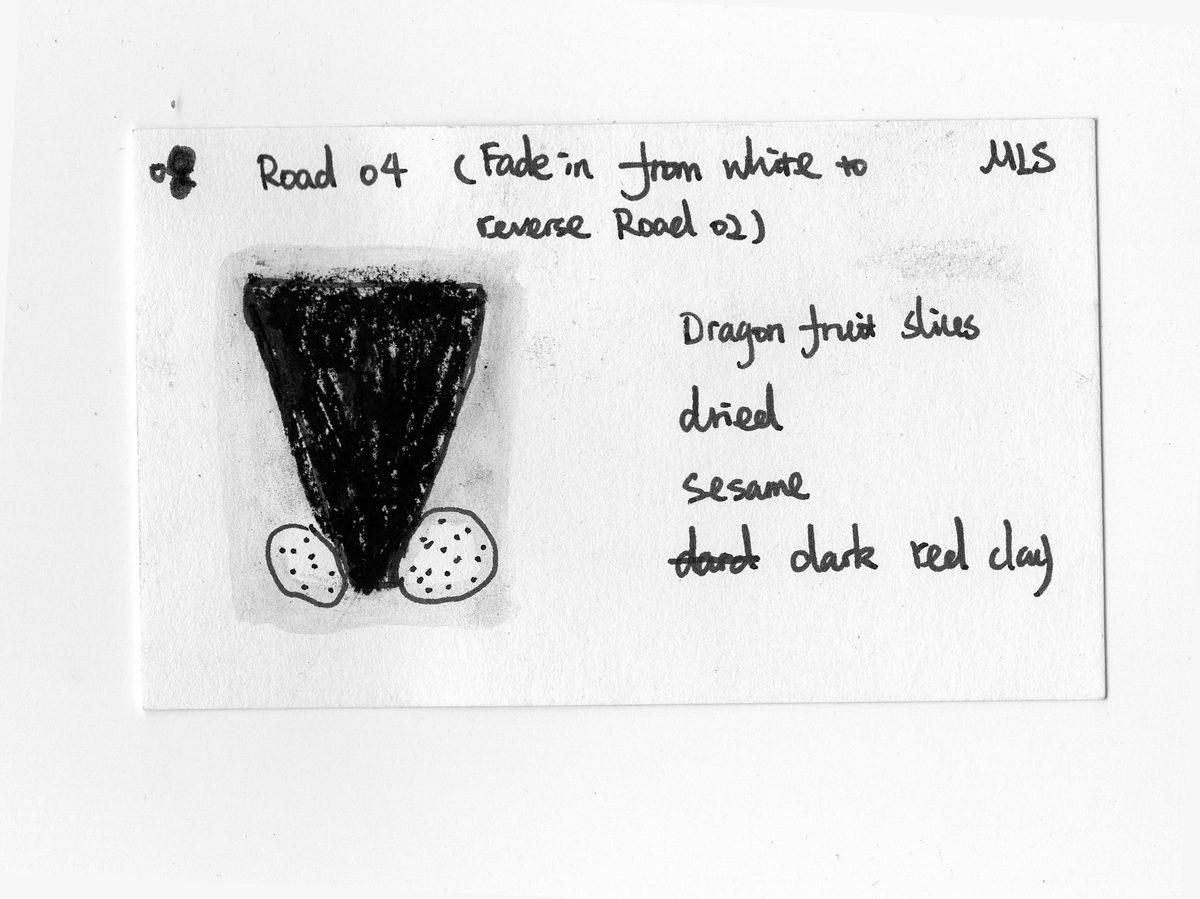 Road 04 (Fade in from white to MLS
reverse Road 02)
Dragon fruit slices
dried
sesame
dark red clay